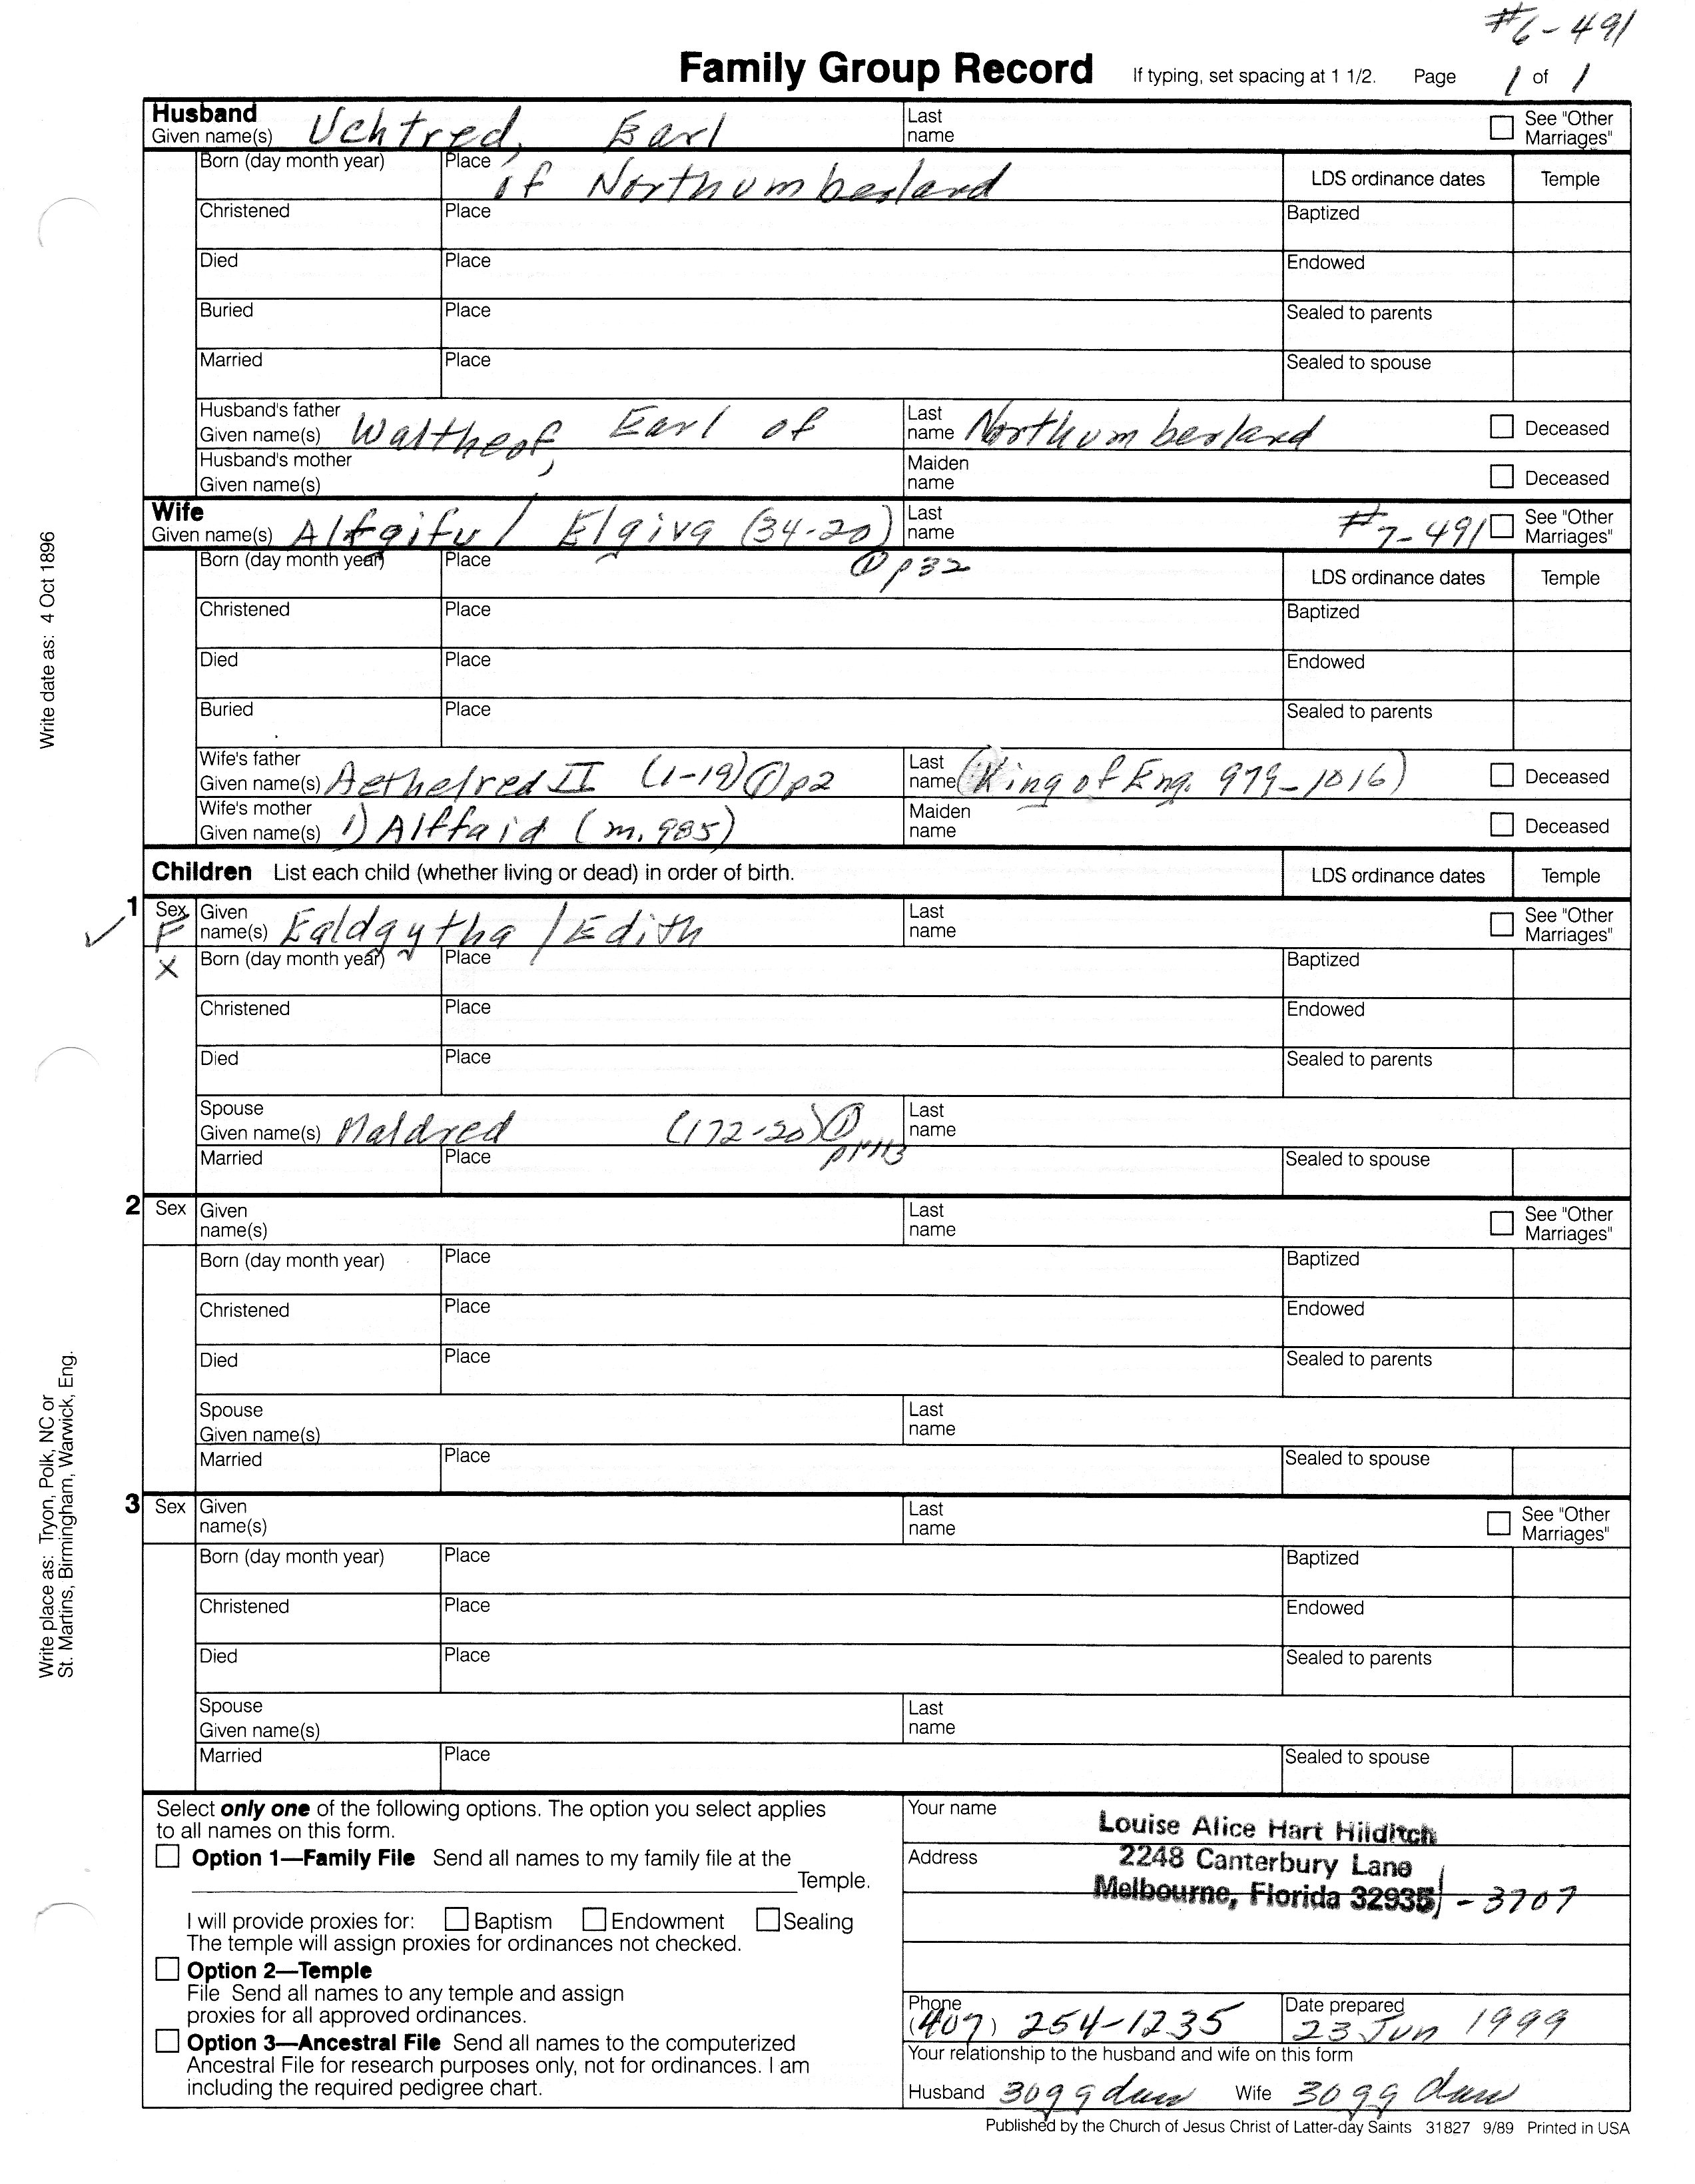 #6-491
Family Group Record If typing, set spacing at 1 1/2. Page 1 of 1
Husband
Given name(s) Uchtred, Earl Last name See "Other Marriages"
Born (day month year) Place of Northumberland LDS ordinance dates Temple
Christened Place Baptized
Died Place Endowed
Buried Place Sealed to parents
Married Place Sealed to spouse
Husband's father Given name(s) Waltheof, Earl of Last name Northumberland Deceased
Husband's mother Given name(s) Maiden name Deceased
Wife
Given name(s) Alfgifu / Elgiva (34-20) Last name #7-491 See "Other Marriages"
Born (day month year) Place ① p32 LDS ordinance dates Temple
Christened Place Baptized
Died Place Endowed
Buried Place Sealed to parents
Wife's father Given name(s) Aethelred II (1-19) ① p2 Last name (King of Eng. 979-1016) Deceased
Wife's mother Given name(s) 1) Alffaid (m. 985) Maiden name Deceased
Children List each child (whether living or dead) in order of birth. LDS ordinance dates Temple
1 Sex F Given name(s) Ealdgytha / Edith Last name See "Other Marriages"
X Born (day month year) Place Baptized
Christened Place Endowed
Died Place Sealed to parents
Spouse Given name(s) Maldred (172-20) ① Last name
Married Place Sealed to spouse
2 Sex Given name(s) Last name See "Other Marriages"
Born (day month year) Place Baptized
Christened Place Endowed
Died Place Sealed to parents
Spouse Given name(s) Last name
Married Place Sealed to spouse
3 Sex Given name(s) Last name See "Other Marriages"
Born (day month year) Place Baptized
Christened Place Endowed
Died Place Sealed to parents
Spouse Given name(s) Last name
Married Place Sealed to spouse
Write date as: 4 Oct 1896
Write place as: Tryon, Polk, NC or
St. Martins, Birmingham, Warwick, Eng.
Select only one of the following options. The option you select applies
to all names on this form.
Option 1—Family File Send all names to my family file at the
Temple.
I will provide proxies for: Baptism Endowment Sealing
The temple will assign proxies for ordinances not checked.
Option 2—Temple
File Send all names to any temple and assign
proxies for all approved ordinances.
Option 3—Ancestral File Send all names to the computerized
Ancestral File for research purposes only, not for ordinances. I am
including the required pedigree chart.
Your name Louise Alice Hart Hilditch
Address 2248 Canterbury Lane
Melbourne, Florida 32935 - 3707
Phone (407) 254-1235 Date prepared 23 Jun 1999
Your relationship to the husband and wife on this form
Husband 30 g g dau Wife 30 g g dau
Published by the Church of Jesus Christ of Latter-day Saints 31827 9/89 Printed in USA